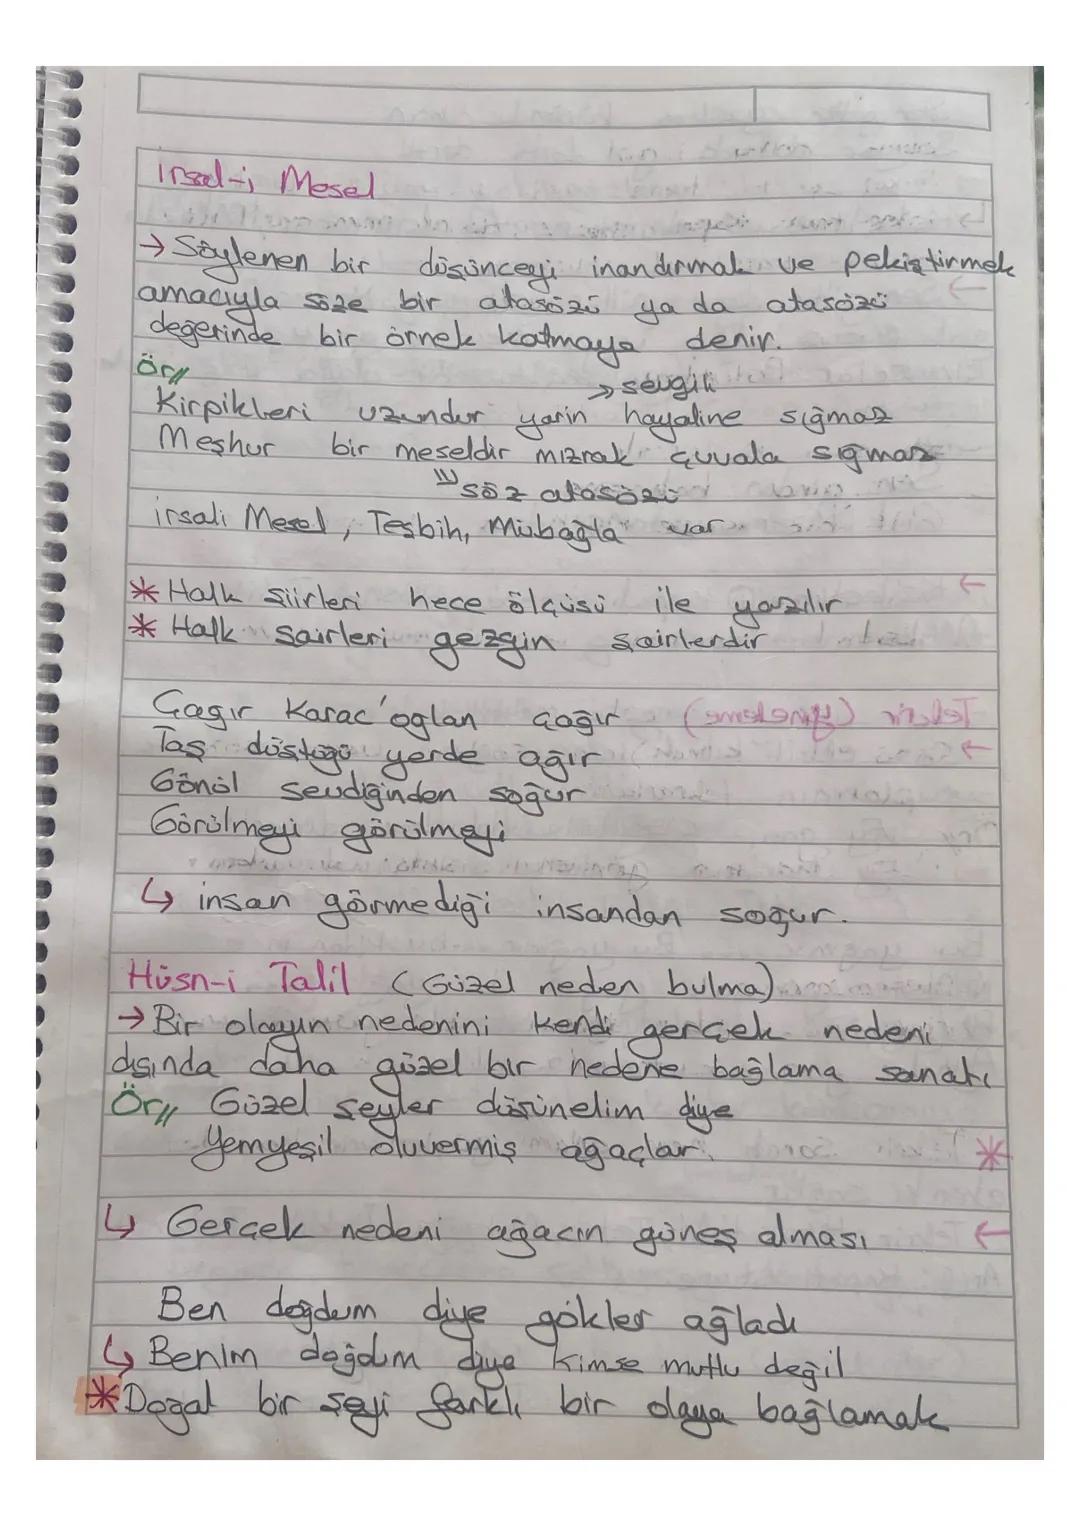 irsal-i Mesel
→ Söylenen bir düşünceyi inandırmak ve pekiştirmek
amacıyla söze bir atasözü ya da atasözü
değerinde bir örnek katmaya denir.
Ör//
→ sevgili
Kirpikleri uzundur yarin hayaline sığmaz
Meşhur bir meseldir mızrak çuvala sığmaz
söz atasözü
irsali Mesel, Teşbih, Mübağla var
* Halk şiirleri hece ölçüsü ile yazılır
* Halk şairleri gezgin şairlerdir
Çağır Karac'oğlan çağır
Taş düştüğü yerde ağır
Gönül sevdiğinden soğur
Görülmeyi görülmeyi
↳ insan görmediği insandan soğur.
Hüsn-i Talil (Güzel neden bulma)
→ Bir olayın nedenini kendi gerçek nedeni
dışında daha güzel bir nedene bağlama sanatı
Ör// Güzel şeyler düşünelim diye
Yemyeşil oluvermiş ağaçlar.
↳ Gerçek nedeni ağacın güneş alması
Ben doğdum diye gökler ağladı
↳ Benim doğdum diye kimse mutlu değil
* Doğal bir şeyi farklı bir olaya bağlamak